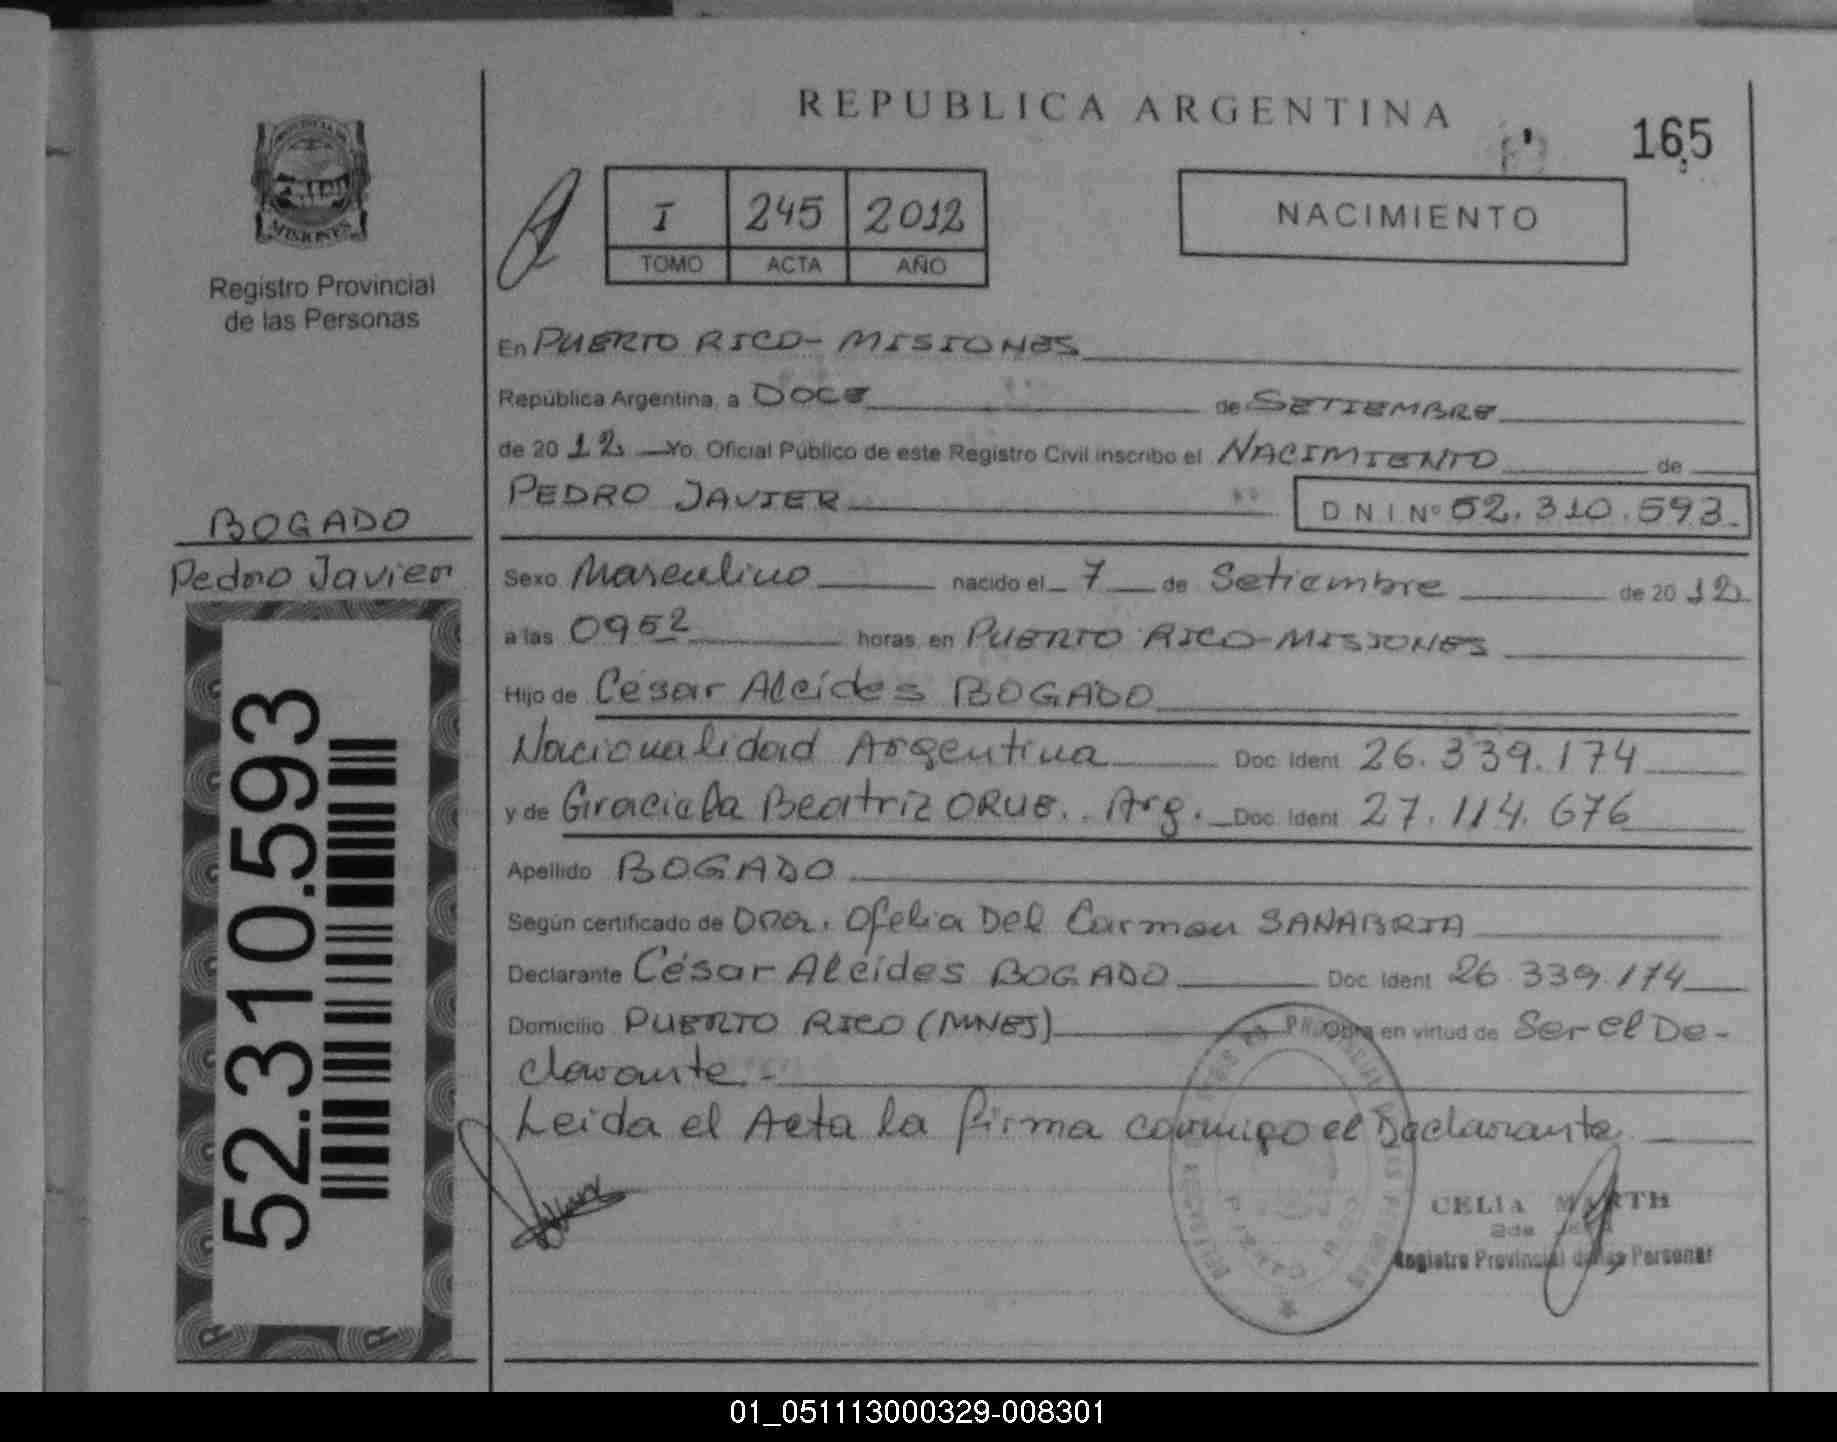 REPUBLICA ARGENTINA
165
PROVINCIA DE
MISIONES
Registro Provincial
de las Personas
I 245 2012
TOMO ACTA AÑO
NACIMIENTO
En PUERTO RICO- MISIONES
República Argentina, a DOCE de SETIEMBRE
de 2012 Yo, Oficial Público de este Registro Civil inscribo el NACIMIENTO de
PEDRO JAVIER DNI Nº 52.310.593.
BOGADO
Pedro Javier
52.310.593
Sexo Masculino nacido el 7 de Setiembre de 2012
a las 0952 horas, en PUERTO RICO-MISIONES
Hijo de César Alcídes BOGADO
Nacionalidad Argentina Doc. Ident 26.339.174
y de Graciela Beatriz ORUE.. Arg. Doc. Ident 27.114.676
Apellido BOGADO
Según certificado de Dra. Ofelia Del Carmen SANABRIA
Declarante César Alcídes BOGADO Doc. Ident 26.339.174
Domicilio PUERTO RICO (MNES) Obra en virtud de Ser el De-
clarante.-
Leida el Acta la firma conmigo el Declarante
CELIA MARTH
Registro Provincial de las Personas
01_051113000329-008301